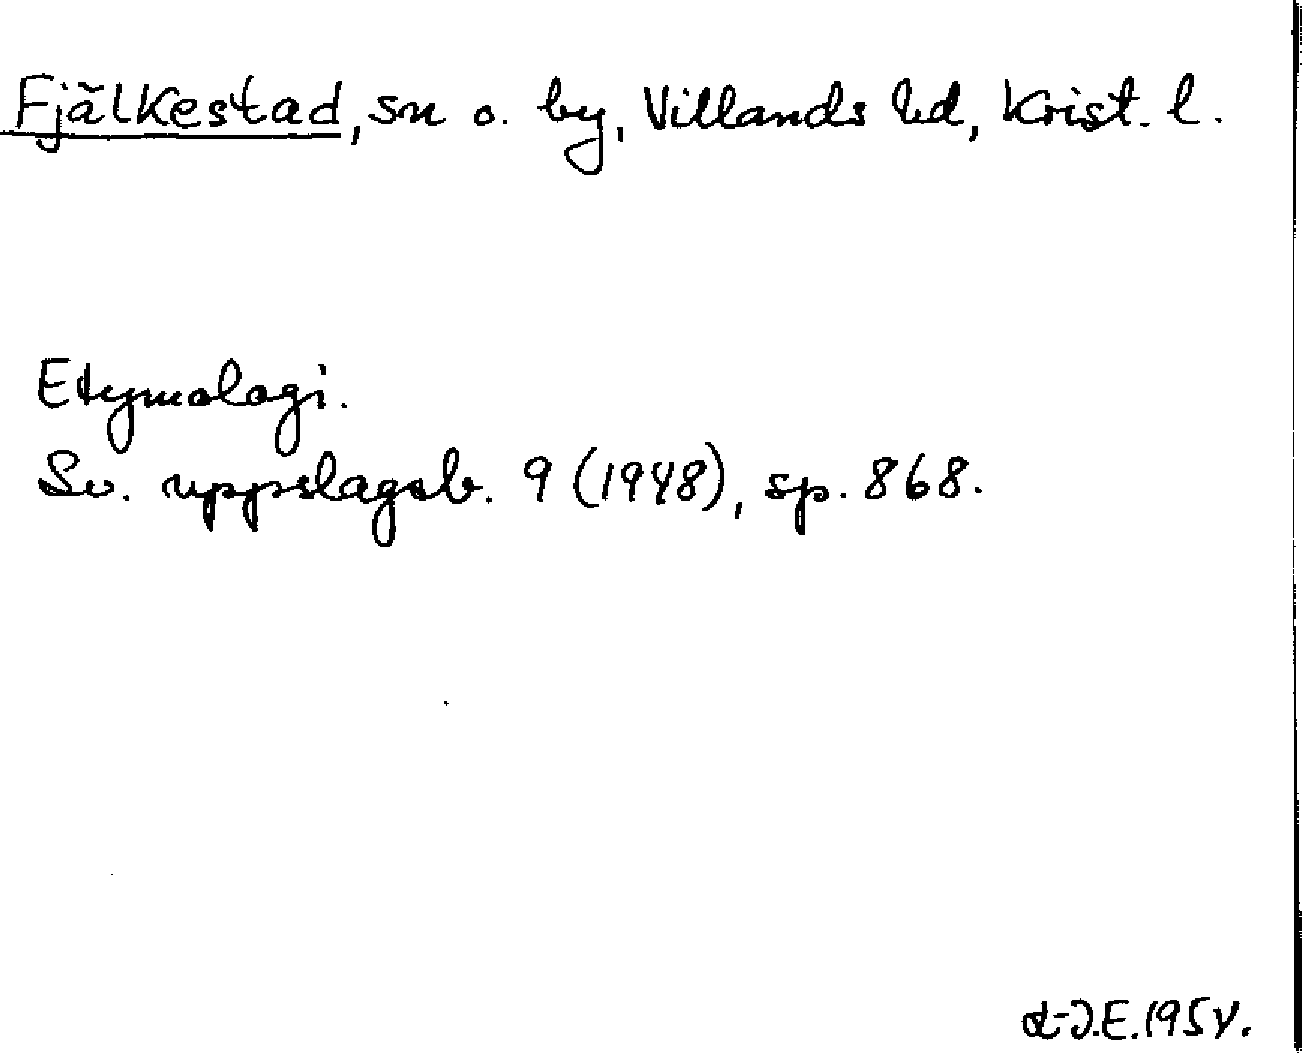 Fjälkestad, sn o. by, Villands hd, Krist. l.
Etymologi.
Sv. uppslagsb. 9 (1948), sp. 868.
1954.